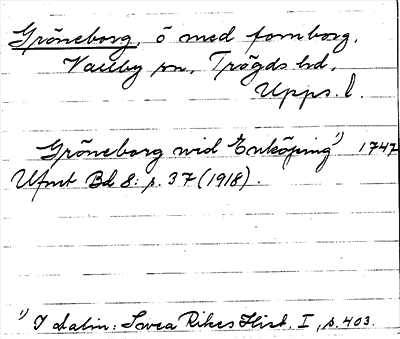 Gröneborg, ö med fornborg,
Vallby sn, Trögds hd,
Upps. l.
Gröneborg wid Enköping ¹) 1747
Ufmt Bd 8: s. 37 (1918).
¹) I Dalin: Svea Rikes Hist. I, s. 403.